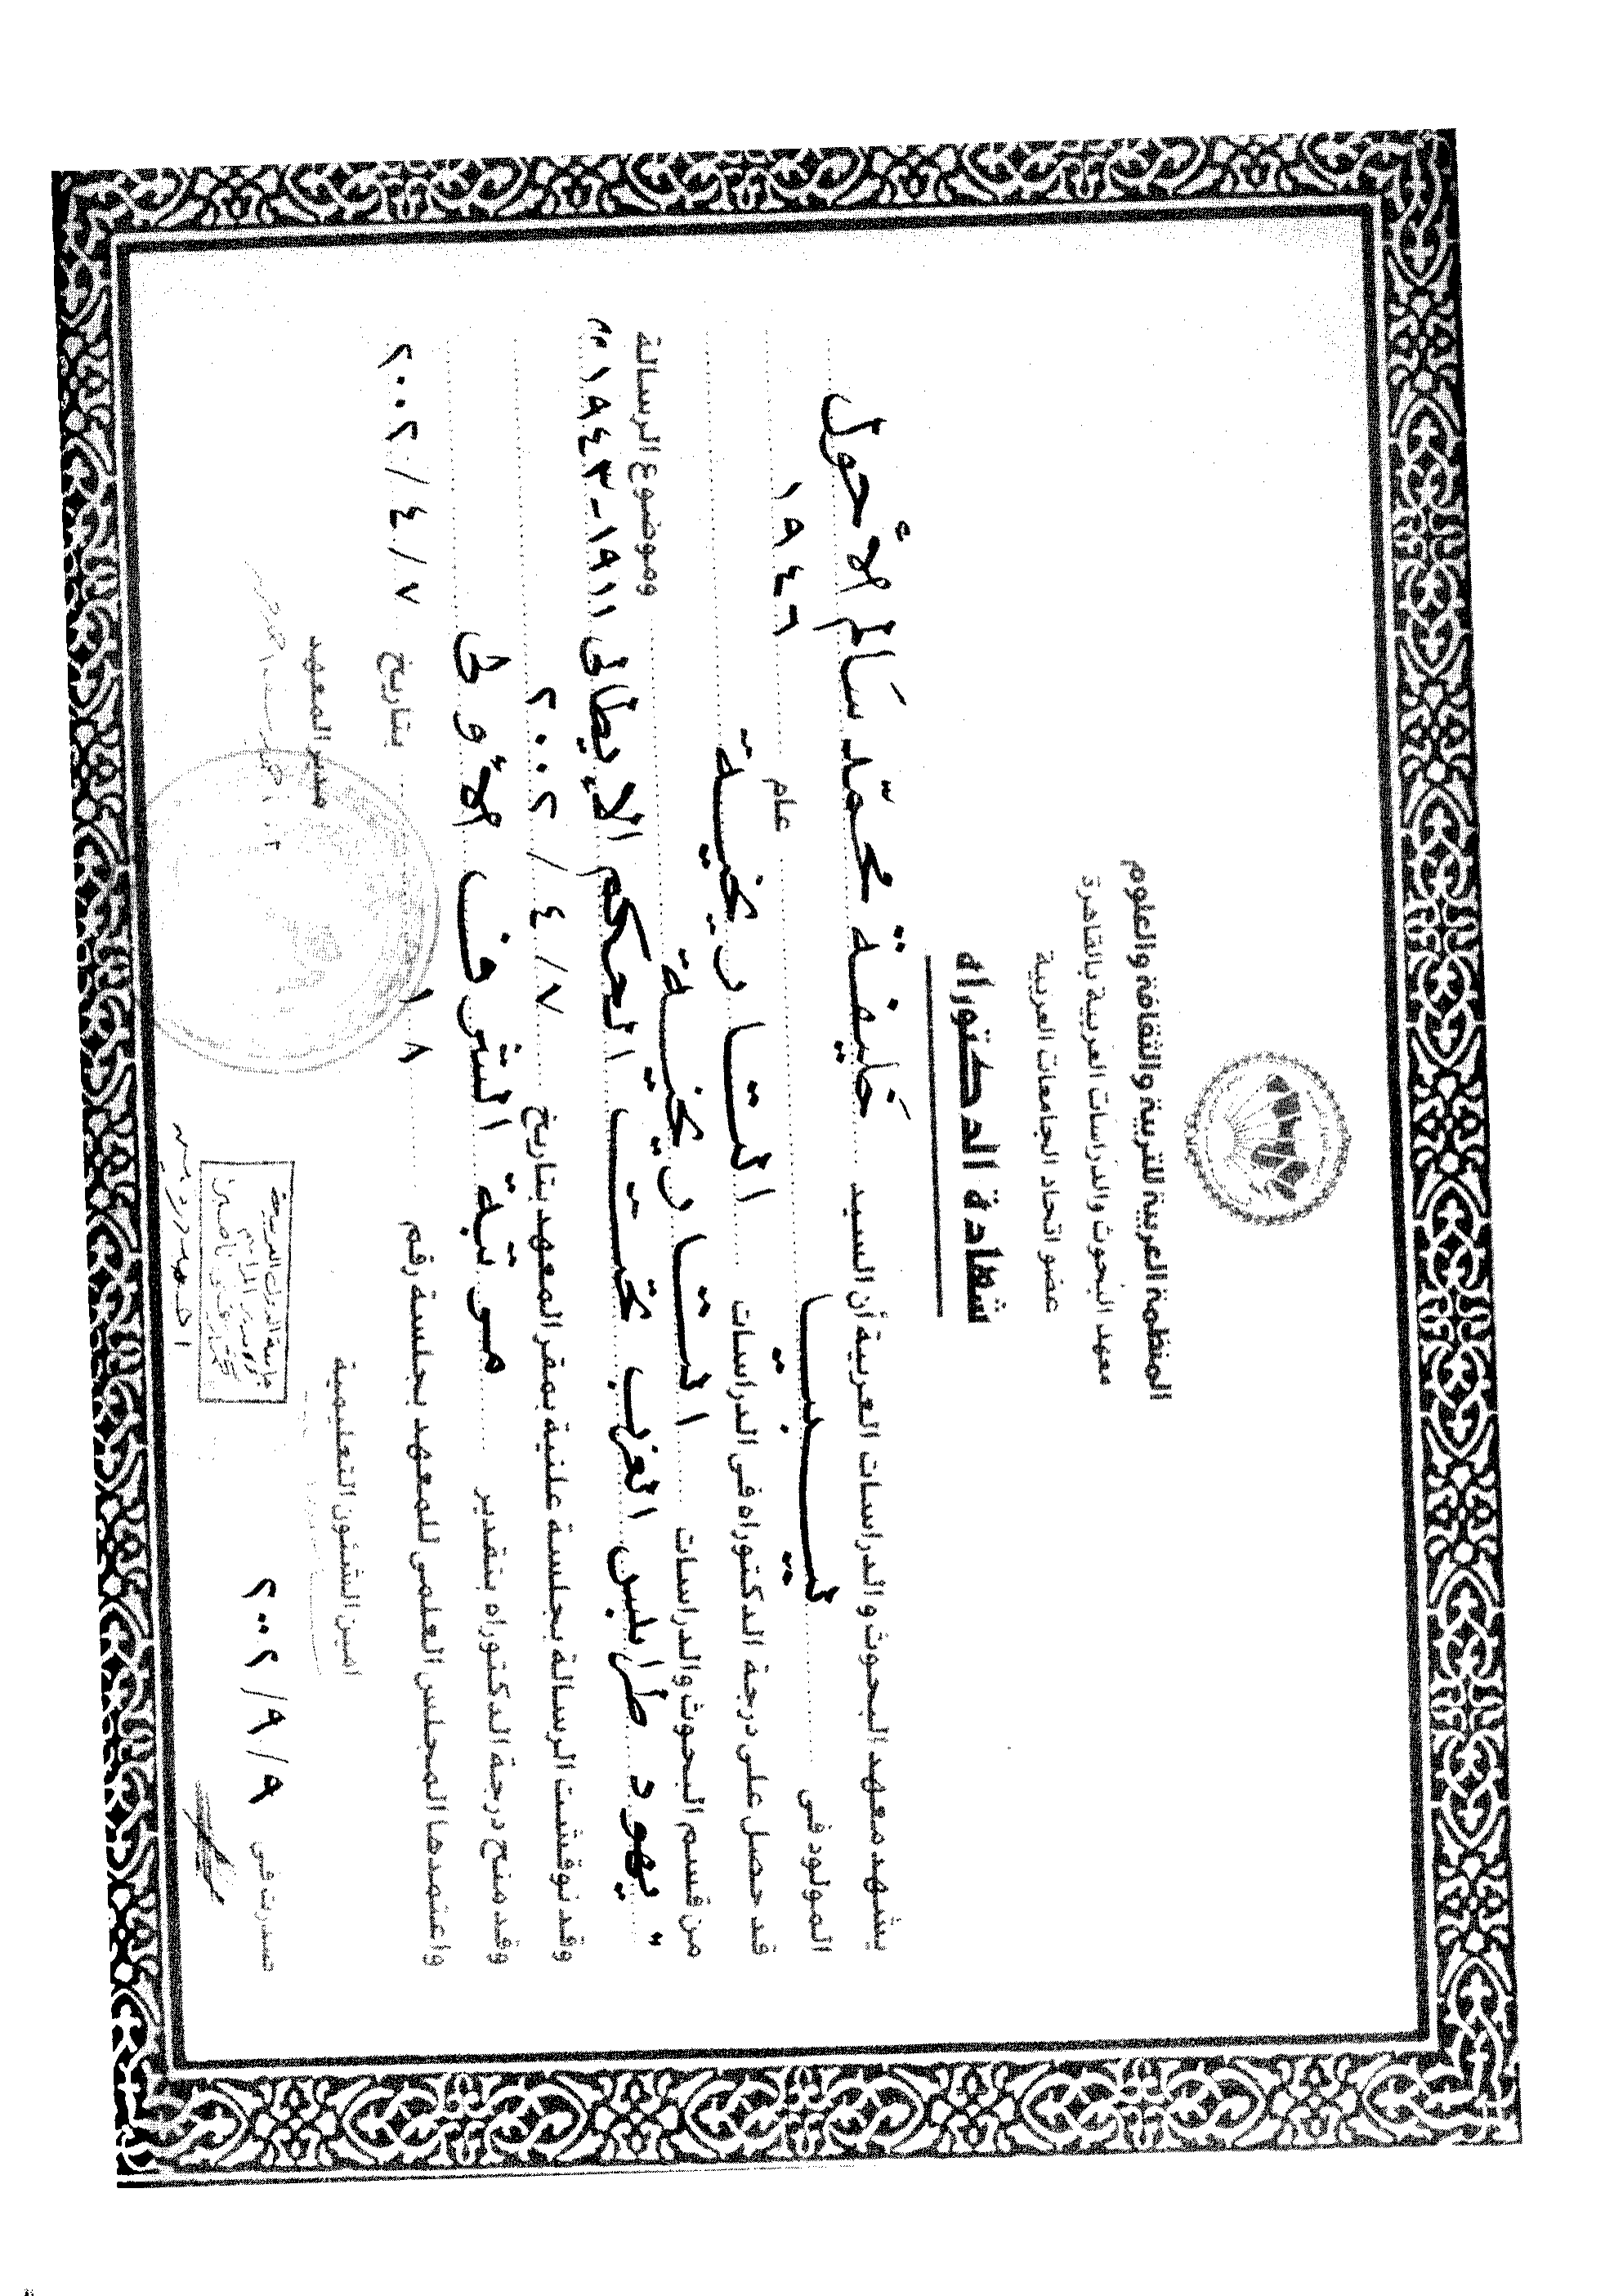 المنظمة العربية للتربية والثقافة والعلوم
معهد البحوث والدراسات العربية بالقاهرة
عضو اتحاد الجامعات العربية
شهادة الدكتوراه
يشهد معهد البحوث والدراسات العربية أن السيد خليفة محمّد سَالم الأحول
المولود فى ليبيا عام ١٩٤٦
قد حصل على درجة الدكتوراه فى الدراسات التاريخية
من قسم البحوث والدراسات التاريخية وموضوع الرسالة
" يهود طرابلس الغرب تحت الحكم الإيطالى ١٩١١-١٩٤٣ م "
وقد نوقشت الرسالة بجلسة علنية بمقر المعهد بتاريخ ٧ / ٤ / ٢٠٠٢
وقد منح درجة الدكتوراه بتقدير مرتبة الشرف الأولى
واعتمدها المجلس العلمى للمعهد بجلسة رقم ١٨ بتاريخ ٧ / ٤ / ٢٠٠٢
امين الشئون التعليمية
مدير المعهد
صدرت فى ٩ / ٩ / ٢٠٠٢